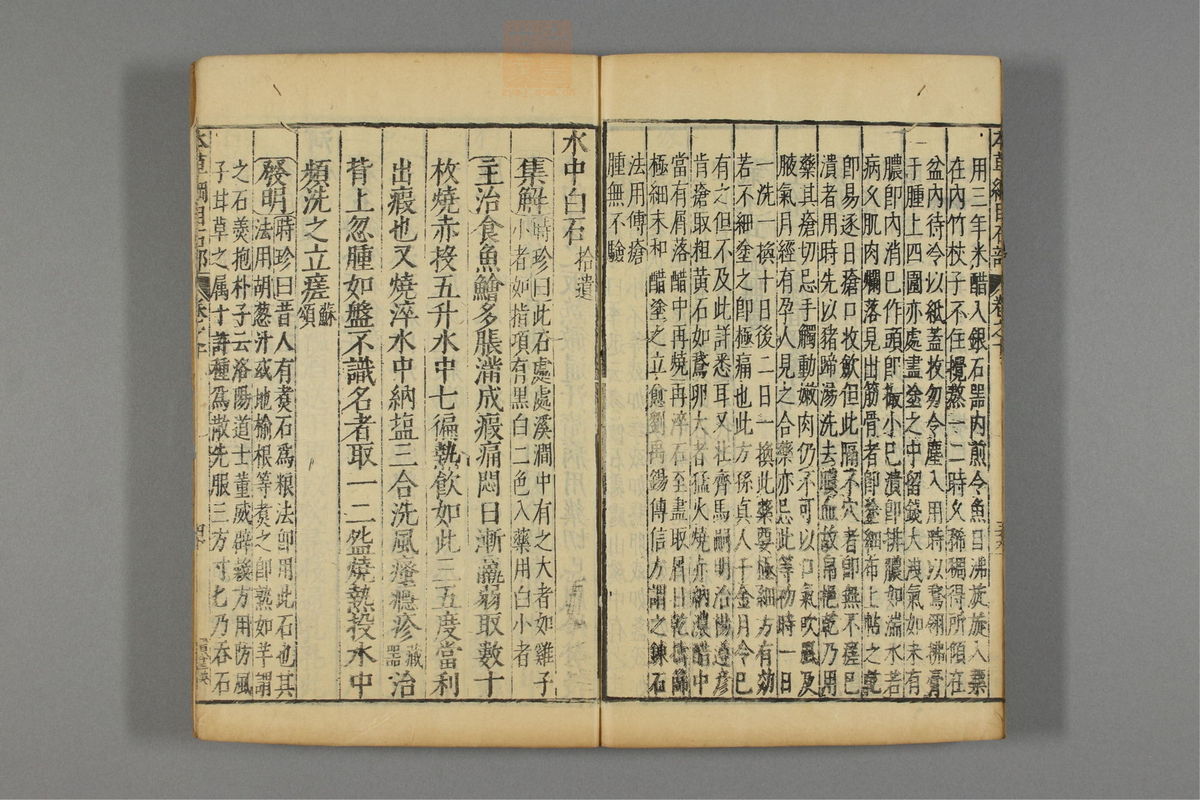 本草綱目石部 卷之十
用三年米醋入銀石器內煎令魚目沸旋旋入藥
在內竹杖子不住攪熬一二時久稀稠得所傾在
盆內待令以紙蓋收勿令塵入用時以鵞翎拂膏
于腫上四圍赤處盡塗之中留錢大洩氣如未有
膿卽內消巳作頭卽撮小巳潰卽排膿如湍水若
病久肌肉爛落見出筋骨者卽塗細布上帖之乾
卽易逐日瘡口收歛但此膈不穴者卽無不瘥巳
潰者用時先以猪蹄湯洗去膿血故帛挹乾乃用
藥其瘡切忌手觸動嫩肉仍不可以口氣吹風及
腋氣月經有孕人見之合藥亦忌此等初時一日
一洗一換十日後二日一換此藥要極細方有効
若不細塗之卽極痛也此方孫真人千金月令巳
有之但不及此詳悉耳又北齊馬嗣明治楊遵彥
背瘡取粗黃石如鵞卵大者猛火燒赤納濃醋中
當有屑落醋中再燒再淬石至盡取屑日乾擣篩
極細末和醋塗之立愈劉禹錫傳信方謂之鍊石
法用傅瘡
腫無不驗
水中白石 拾遺
集解 時珍曰此石處處溪澗中有之大者如雞子
小者如指頂有黑白二色入藥用白小者
主治食魚鱠多脹滿成瘕痛悶日漸羸弱取數十
枚燒赤投五升水中七徧熱飲如此三五度當利
出瘕也又燒淬水中納塩三合洗風瘙癮疹 藏器 治
背上忽腫如盤不識名者取一二盌燒熱投水中
頻洗之立瘥 蘇頌
發明 時珍曰昔人有煑石爲粮法卽用此石也其
法用胡葱汁或地榆根等煑之卽熟如芋謂
之石羹抱朴子云洛陽道士董威辟糓方用防風
子甘草之属十許種爲散先服三方寸匕乃吞石
本草綱目石部 卷之十